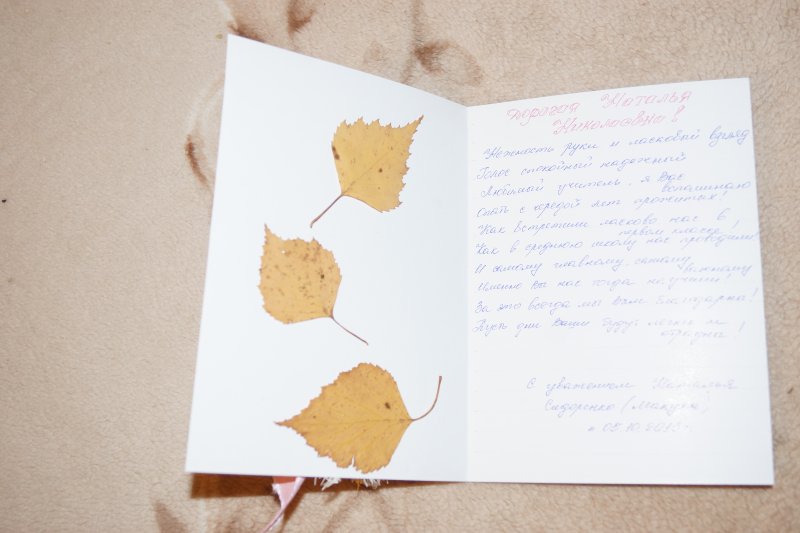 Дорогая Наталья
Николаевна!
Нежность руки и ласковый взгляд
Голос спокойный надежный
Любимый учитель, я Вас
вспоминаю
Опять с чредой лет прожитых!
Как встретили ласково нас в
первом классе,
Как в среднюю школу нас проводили!
И самому главному, самому
важному
Именно Вы нас тогда научили!
За это всегда мы Вам благодарны!
Пусть дни Ваши будут легки и
отрадны!
С уважением Наталья
Сидоренко
05.10.2013г.